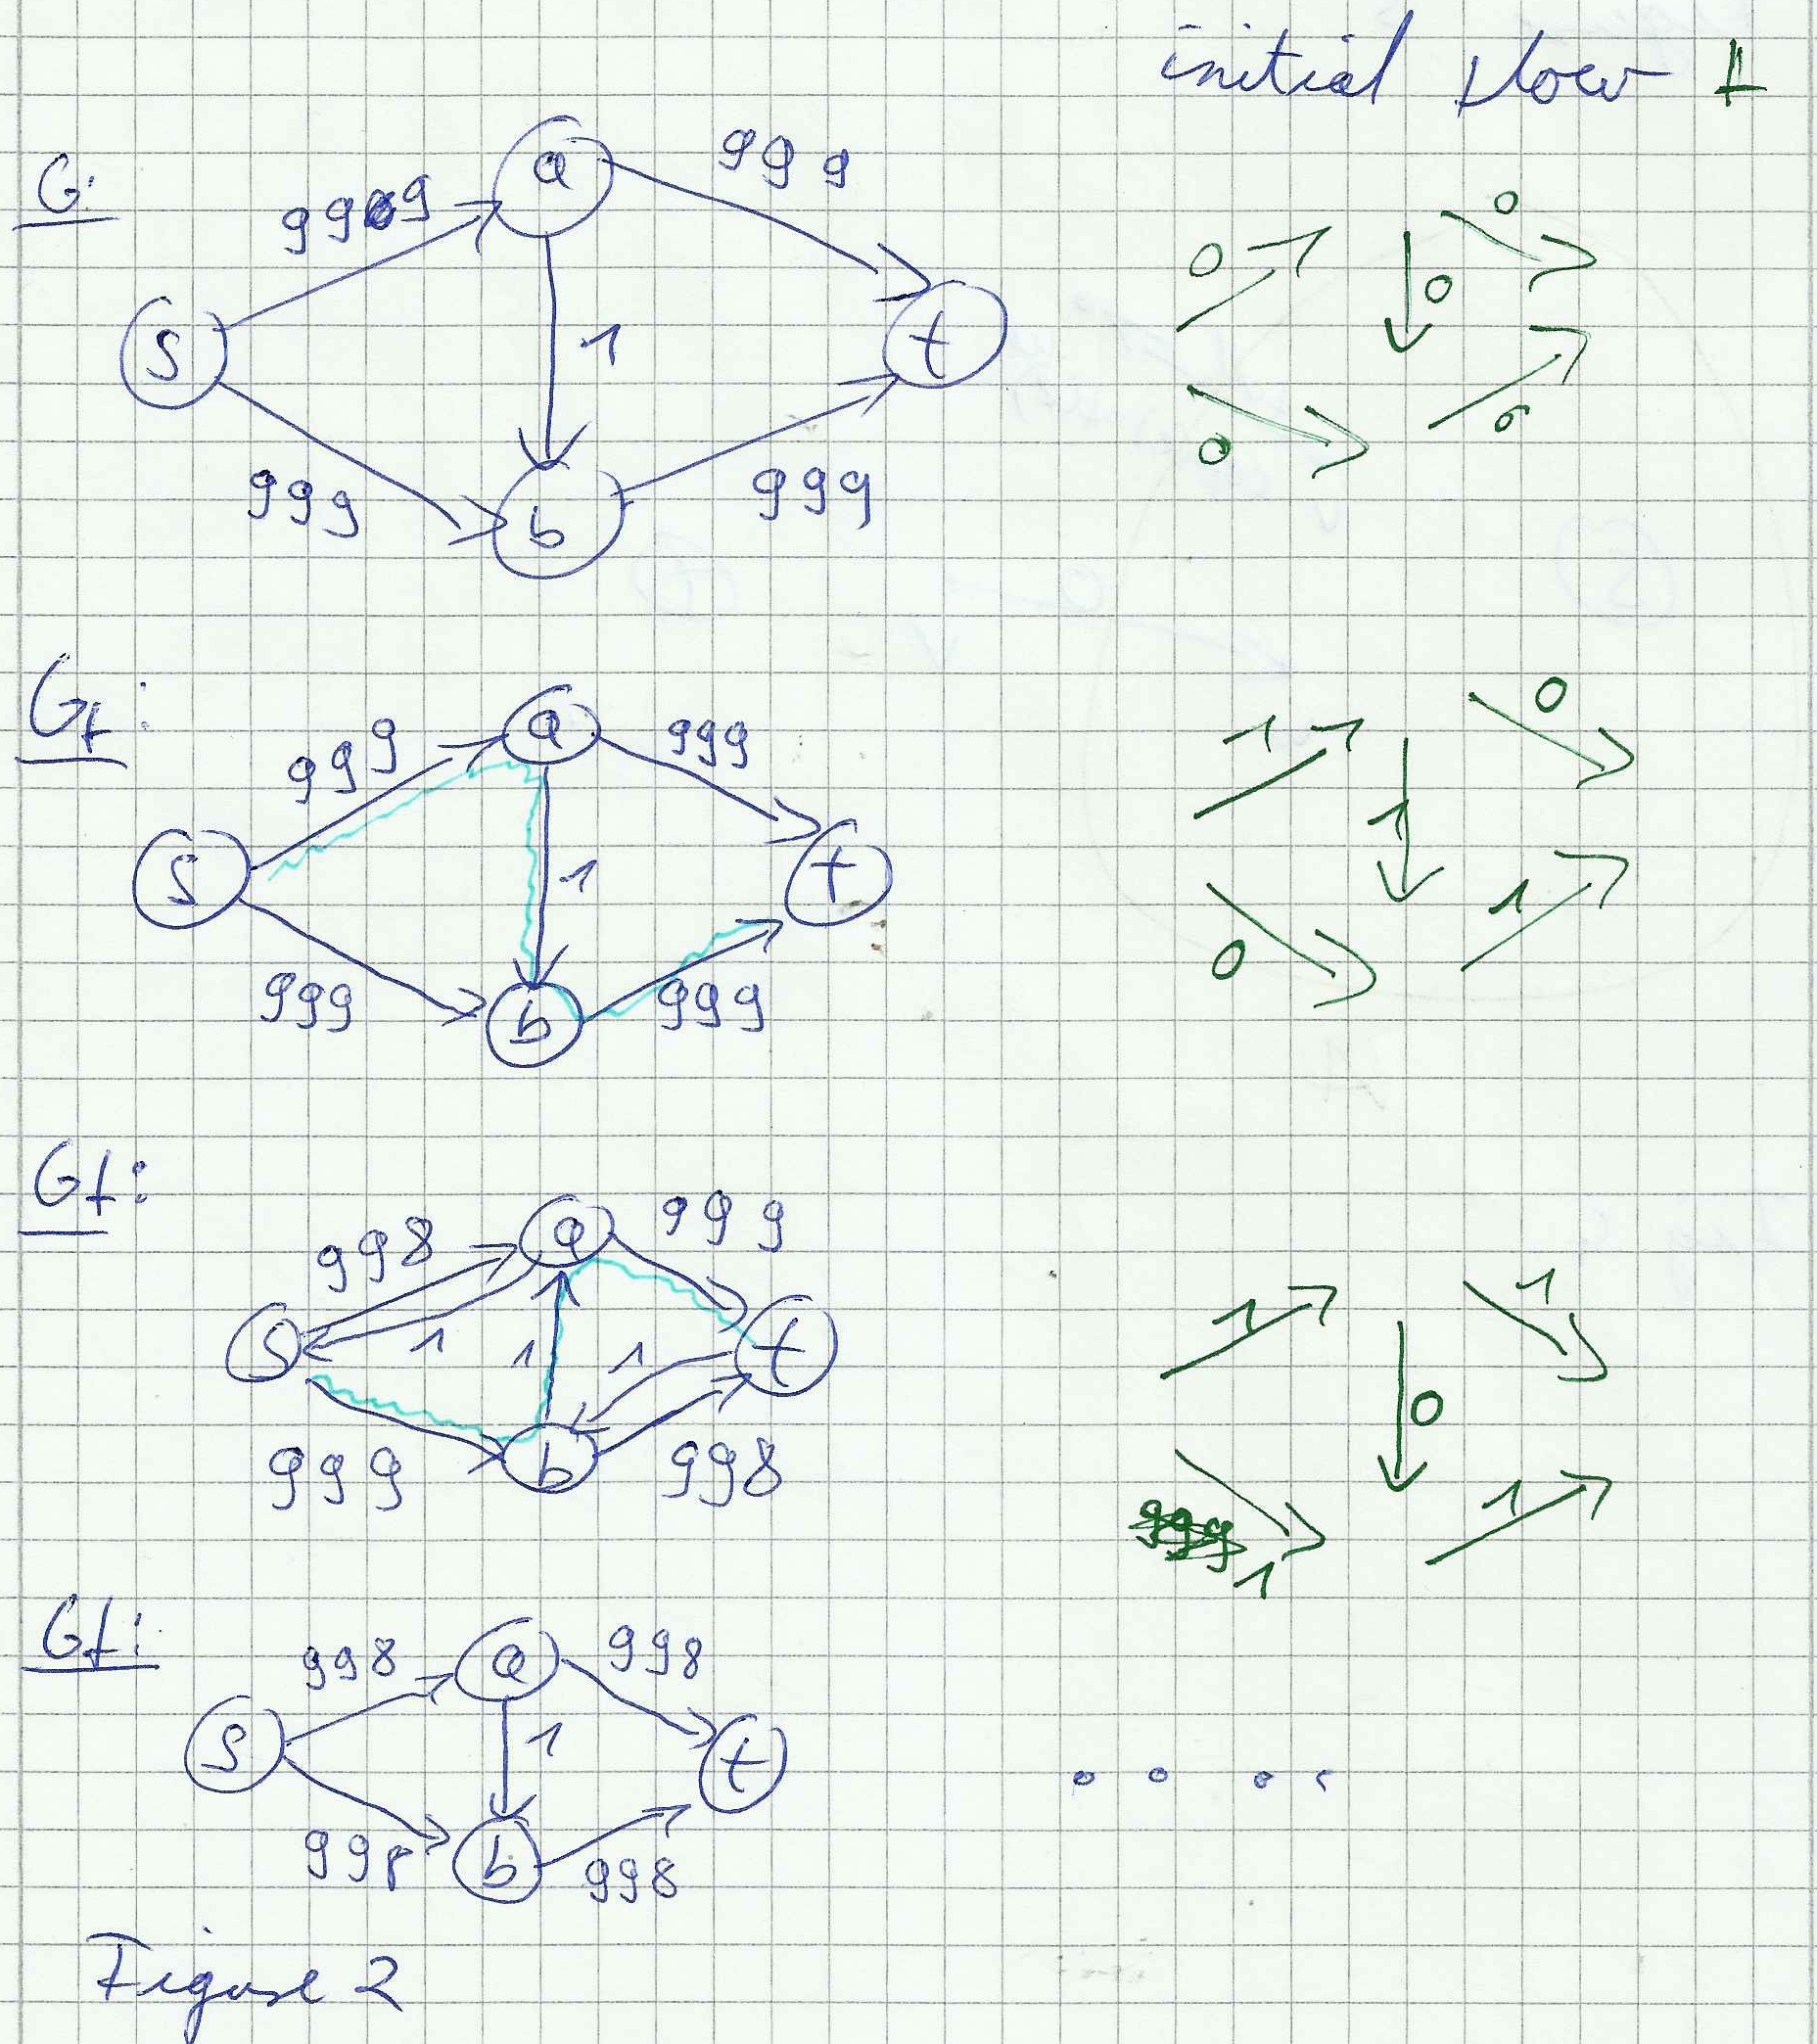 initial flow f
G:
999 a 999
0 0
s 1 t
0
999 b 999
0 0
Gf:
999 a 999
1 0
s 1 t
1
999 b 999
0 1
Gf:
998 a 999
1 1
s 1 1 1 t
0
999 b 998
1 1
Gf:
998 a 998
s 1 t
998 b 998
Figure 2